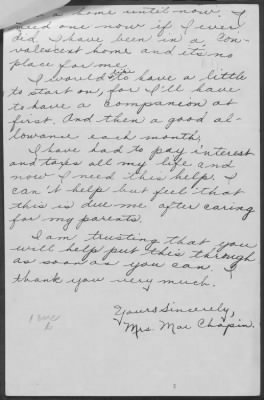 home until now. I
need one now if I ever
did. I have been in a Con-
valescent home and it's no
place for me.
I would like to have a little
to start on, for I'll have
to have a companion at
first. And then a good al-
lowance each month.
I have had to pay interest
and taxes all my life and
now I need this help. I
can't help but feel that
this is due me after caring
for my parents.
I am trusting that you
will help put this through
as soon as you can. I
thank you very much.
Yours Sincerely,
Mrs. Mae Chapin.